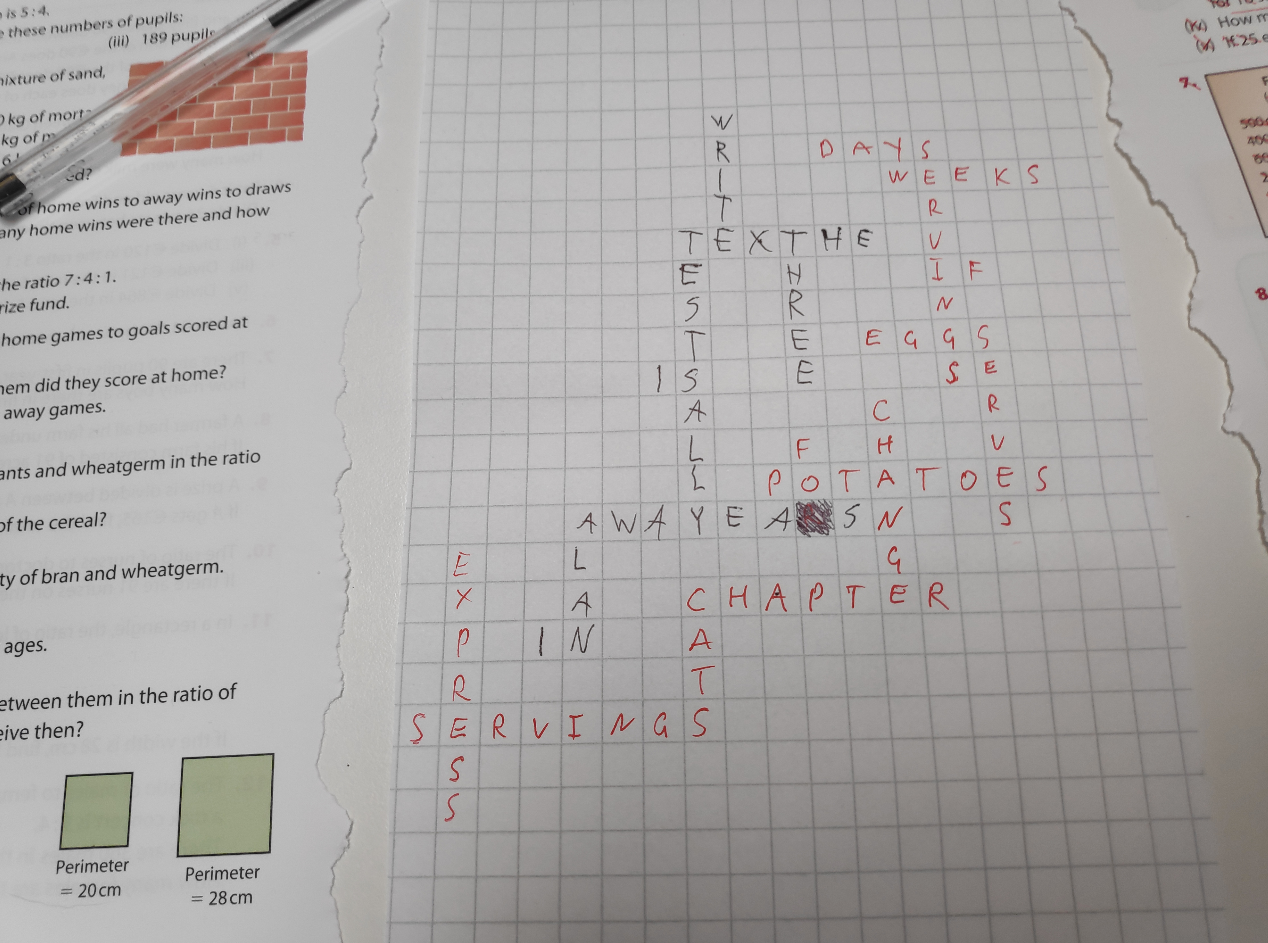 is 5:4.
these numbers of pupils:
(iii) 189 pupils
mixture of sand,
kg of morta
kg of m
ed?
of home wins to away wins to draws
any home wins were there and how
the ratio 7:4:1.
rize fund.
home games to goals scored at
hem did they score at home?
away games.
ants and wheatgerm in the ratio
of the cereal?
ty of bran and wheatgerm.
ages.
etween them in the ratio of
eive then?
Perimeter
= 20 cm
Perimeter
= 28 cm
WRITE
DAYS
WEEKS
SERVINGS
TEXTHE
TESTSALLY
THREE
IF
EGGS
SERVES
IS
CHANGE
FO
POTATOES
AWAYEA SN
ALAN
IN
EXPRESS
CHAPTER
CATS
SERVINGS
How m
7.
8.